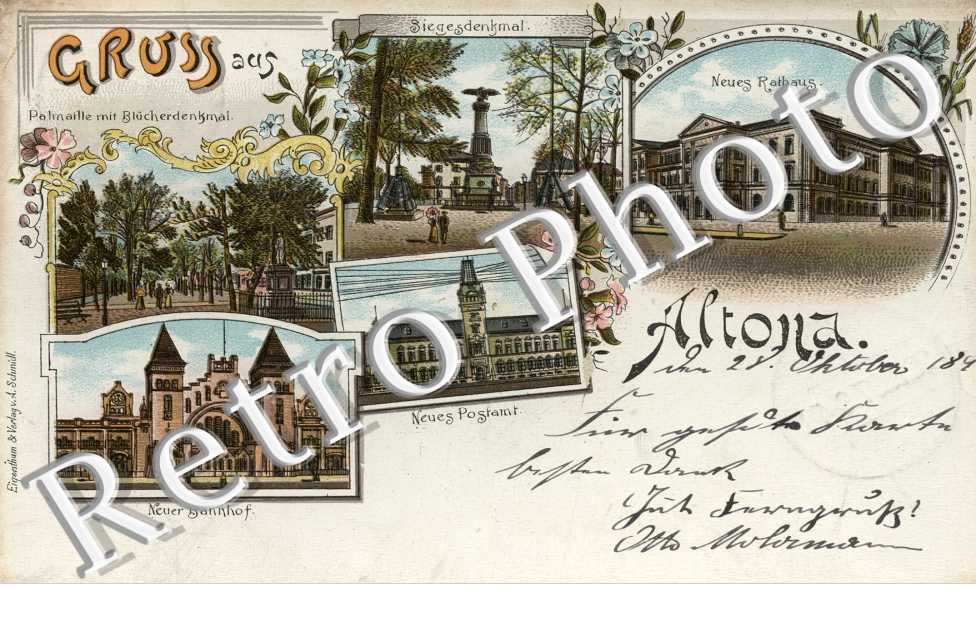 GRUSS aus
Siegesdenkmal.
Neues Rathaus.
Palmaille mit Blücherdenkmal.
Altona.
den 28. Oktober 189
Für gesandte Karte
besten Dank
Gut Ferngruß!
Otto
Neues Postamt.
Neuer Bahnhof.
Eigenthum & Verlag v. A. Schmidt.
Retro Photo